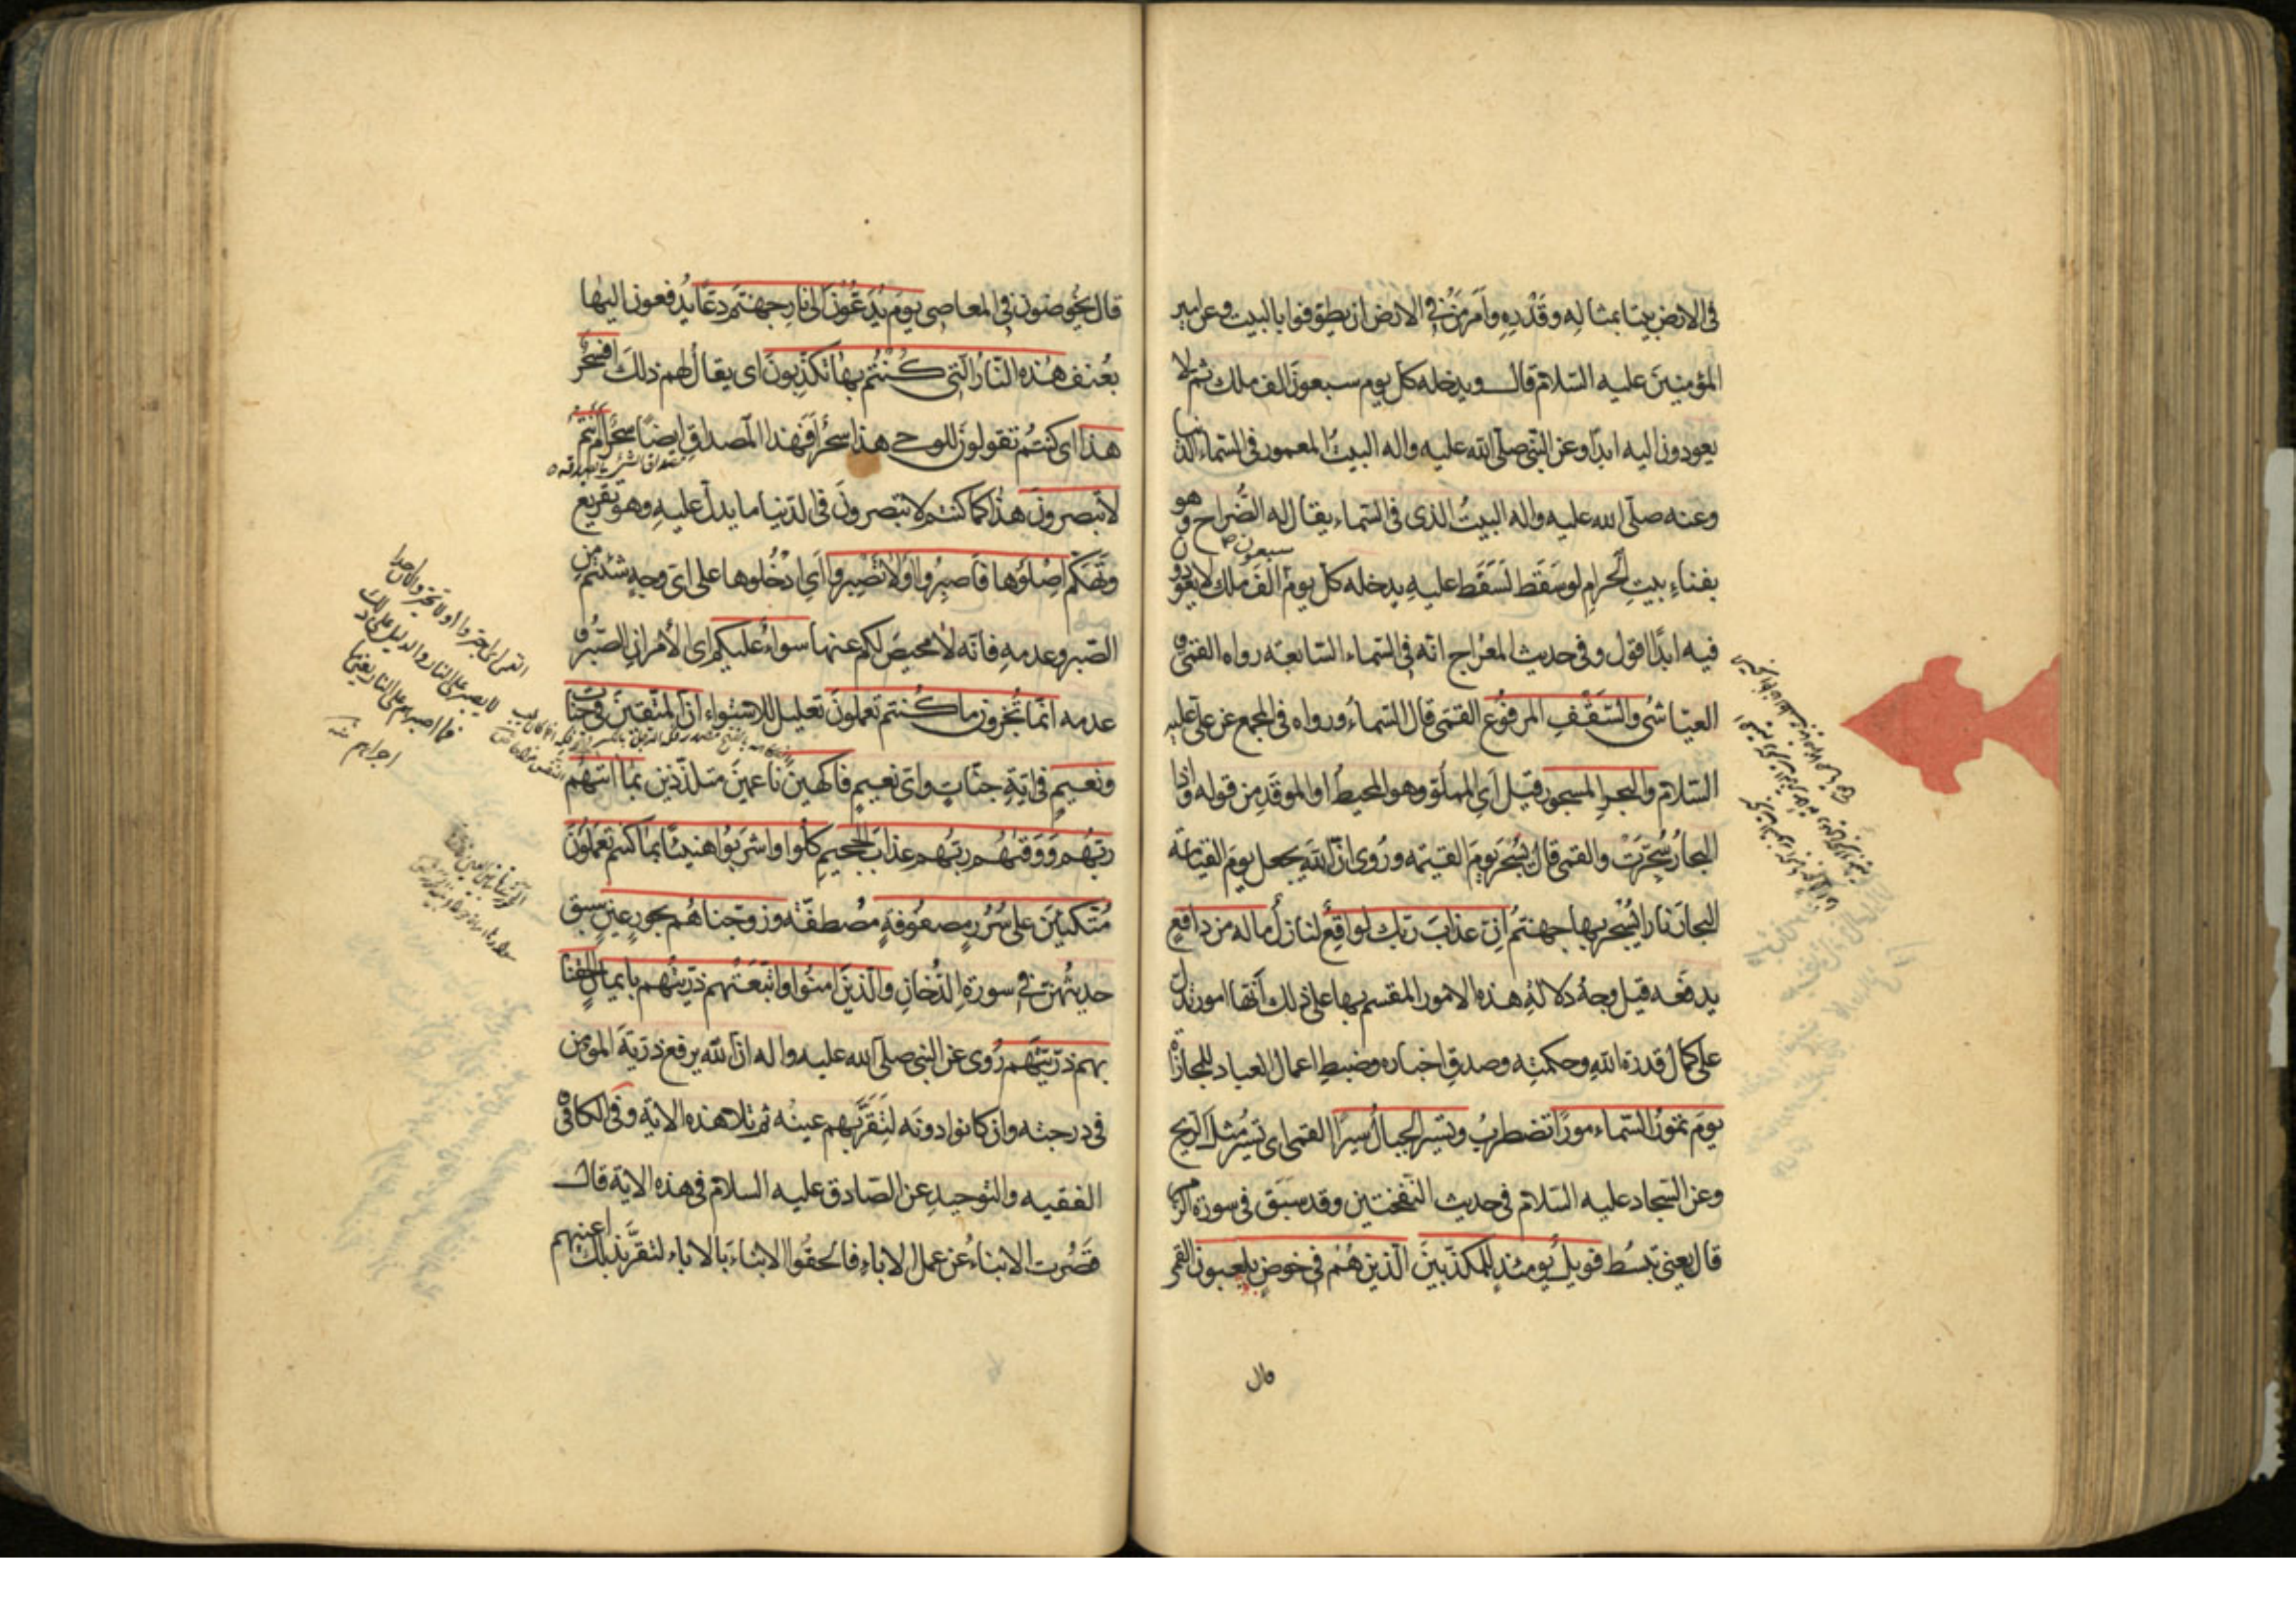 فى الارض بيتا بمثاله وقدره وامر من فى الارض ان يطوفوا بالبيت وعن امير
المؤمنين عليه السلام قال ويدخله كل يوم سبعون الف ملك ثم لا
يعودون اليه ابدا وعن النبى صلى الله عليه واله البيت المعمور فى السماء الدنيا
وعنه صلى الله عليه واله البيت الذى فى السماء يقال له الضراح وهو
بفناء بيت الحرام لو سقط لسقط عليه يدخله كل يوم سبعون الف ملك لا يعودون
فيه ابدا اقول وفى حديث المعراج انه فى السماء السابعة رواه القمى و
العياشى والسقف المرفوع القمى قال السماء ورواه فى المجمع عن على عليه
السلام والبحر المسجور قيل اى المملو وهو المحيط او الموقد من قوله واذا
البحار سجرت والقمى قال يسجر يوم القيمة وروى ان الله يجعل يوم القيامة
البحار نارا يسجر بها جهنم ان عذاب ربك لواقع لنازل ماله من دافع
يدفعه قيل وجه دلالة هذه الامور المقسم بها على ذلك انها امور تدل
على كمال قدرة الله وحكمته وصدق اخباره وضبط اعمال العباد للمجازاة
يوم تمور السماء مورا تضطرب وتسير الجبال سيرا القمى اى تسير مثل الريح
وعن السجاد عليه السلام فى حديث النفختين وقد سبق فى سورة الزمر
قال يعنى تبسط فويل يومئذ للمكذبين الذين هم فى خوض يلعبون القمى
قال
قال يخوضون فى المعاصى يوم يدعون الى نار جهنم دعا يدفعون اليها
بعنف هذه النار التى كنتم بها تكذبون اى يقال لهم ذلك افسحر
هذا اى كنتم تقولون للوحى هذا سحر فهذا المصداق ايضا سحر ام انتم
لا تبصرون هذا كما كنتم لا تبصرون فى الدنيا ما يدل عليه وهو تقريع
وتهكم اصلوها فاصبروا او لا تصبروا اى ادخلوها على اى وجه شئتم من
الصبر وعدمه فانه لا محيص لكم عنها سواء عليكم اى الامران الصبر و
عدمه انما تجزون ما كنتم تعملون تعليل للاستواء ان المتقين فى جنات
ونعيم فى اية جنات واى نعيم فاكهين ناعمين متلذذين بما اتيهم
ربهم ووقيهم ربهم عذاب الجحيم كلوا واشربوا هنيئا بما كنتم تعملون
متكئين على سرر مصفوفة مصطفة وزوجناهم بحور عين سبق
حديثهن فى سورة الدخان والذين امنوا واتبعتهم ذريتهم بايمان الحقنا
بهم ذريتهم روى عن النبى صلى الله عليه واله ان الله يرفع ذرية المؤمن
فى درجته وان كانوا دونه لتقر بهم عينه ثم تلا هذه الاية وفى الكافى و
الفقيه والتوحيد عن الصادق عليه السلام فى هذه الاية قال
قصرت الابناء عن عمل الاباء فالحقوا الابناء بالاباء لتقر بذلك اعينهم